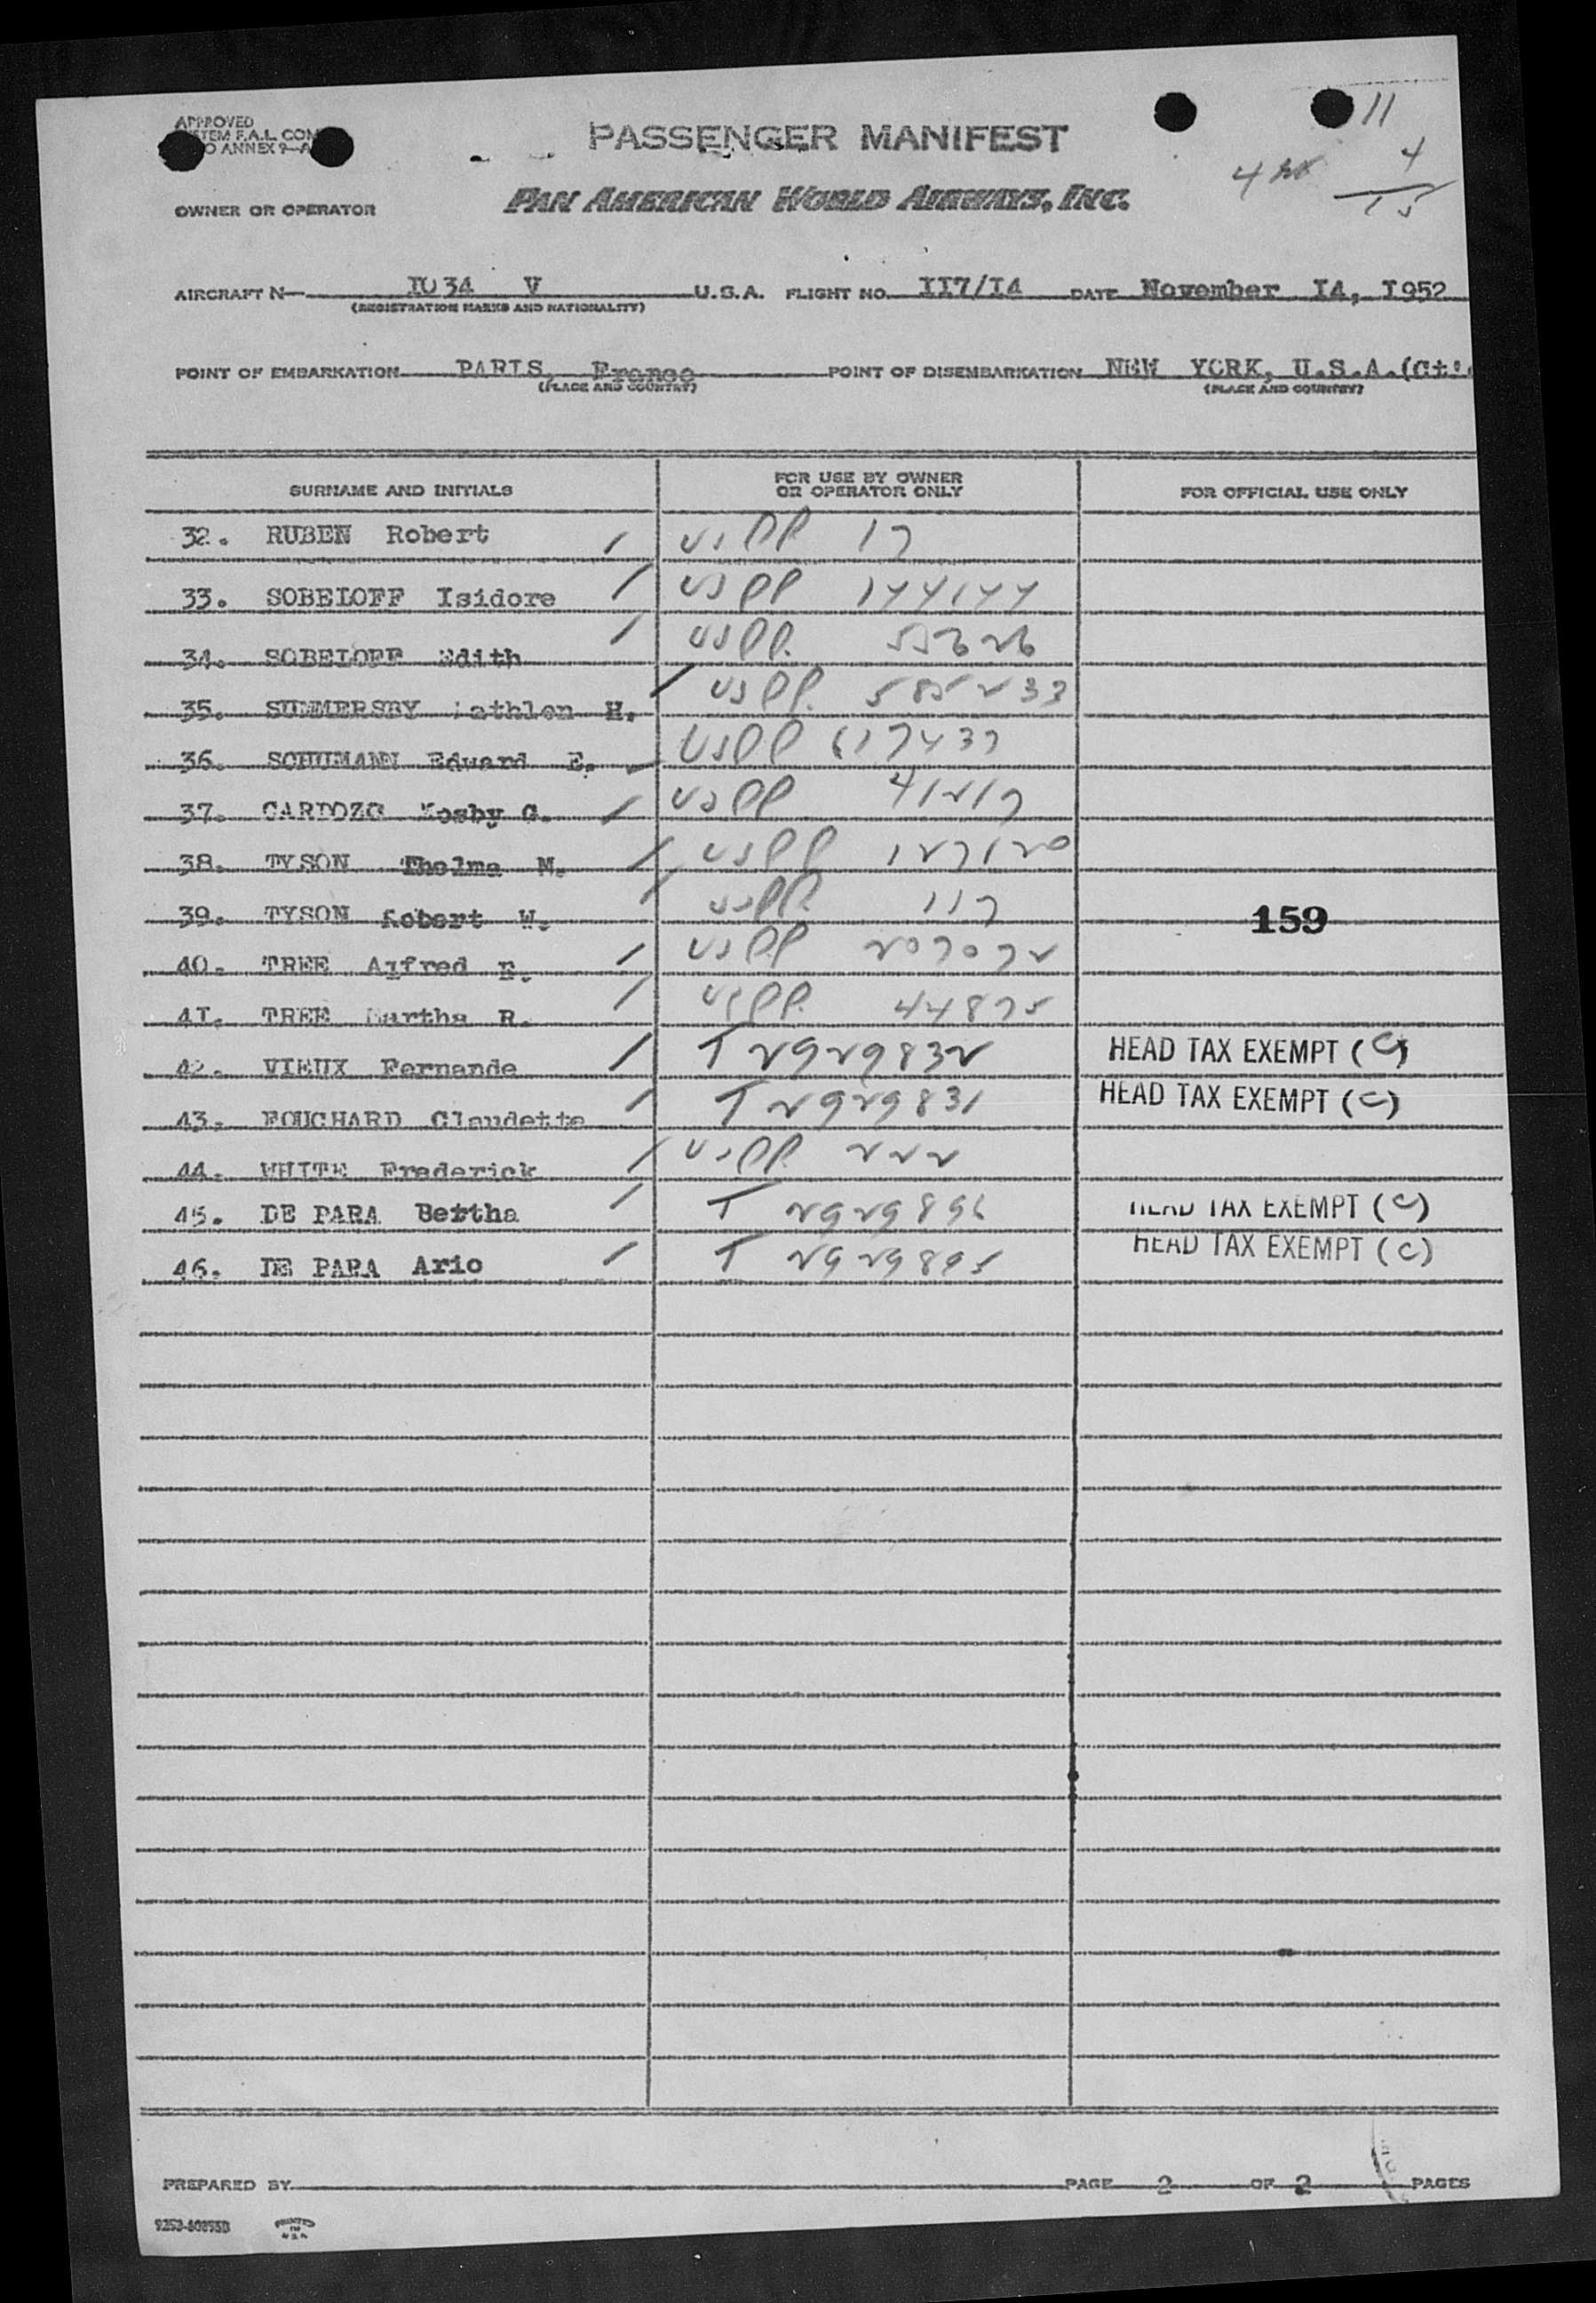 APPROVED
SYSTEM F.A.L. COM
TO ANNEX 9-A
PASSENGER MANIFEST
11
4
4
15
OWNER OR OPERATOR PAN AMERICAN WORLD AIRWAYS, INC.
AIRCRAFT N— IO34 V U.S.A. FLIGHT NO. II7/I4 DATE November I4, I952
(REGISTRATION MARKS AND NATIONALITY)
POINT OF EMBARKATION PARIS, France POINT OF DISEMBARKATION NEW YORK, U.S.A.
(PLACE AND COUNTRY) (PLACE AND COUNTRY)
SURNAME AND INITIALS FOR USE BY OWNER OR OPERATOR ONLY FOR OFFICIAL USE ONLY
32. RUBEN Robert / uspp 17
33. SOBELOFF Isidore / uspp 144144
34. SOBELOFF Edith / uspp. 55626
35. SUMMERSBY Kathlen H. / uspp. 585233
36. SCHUMANN Edward E. uspp 617437
37. CARDOZO Mosby G. / uspp 41217
38. TYSON Thelma M. / uspp 127120
39. TYSON Robert W. / uspp. 117 159
40. TREE Alfred / uspp 207072
4I. TREE Martha R. / uspp. 44875
42. VIEUX Fernande / T 2929832 HEAD TAX EXEMPT (C)
43. FOUCHARD Claudette / T 2929831 HEAD TAX EXEMPT (C)
44. WHITE Frederick / uspp. 222
45. DE PARA Bertha / T 2929896 HEAD TAX EXEMPT (C)
46. DE PARA Ario / T 2929895 HEAD TAX EXEMPT (C)
PREPARED BY PAGE 2 OF 2 PAGES
PRINTED
IN
U.S.A.